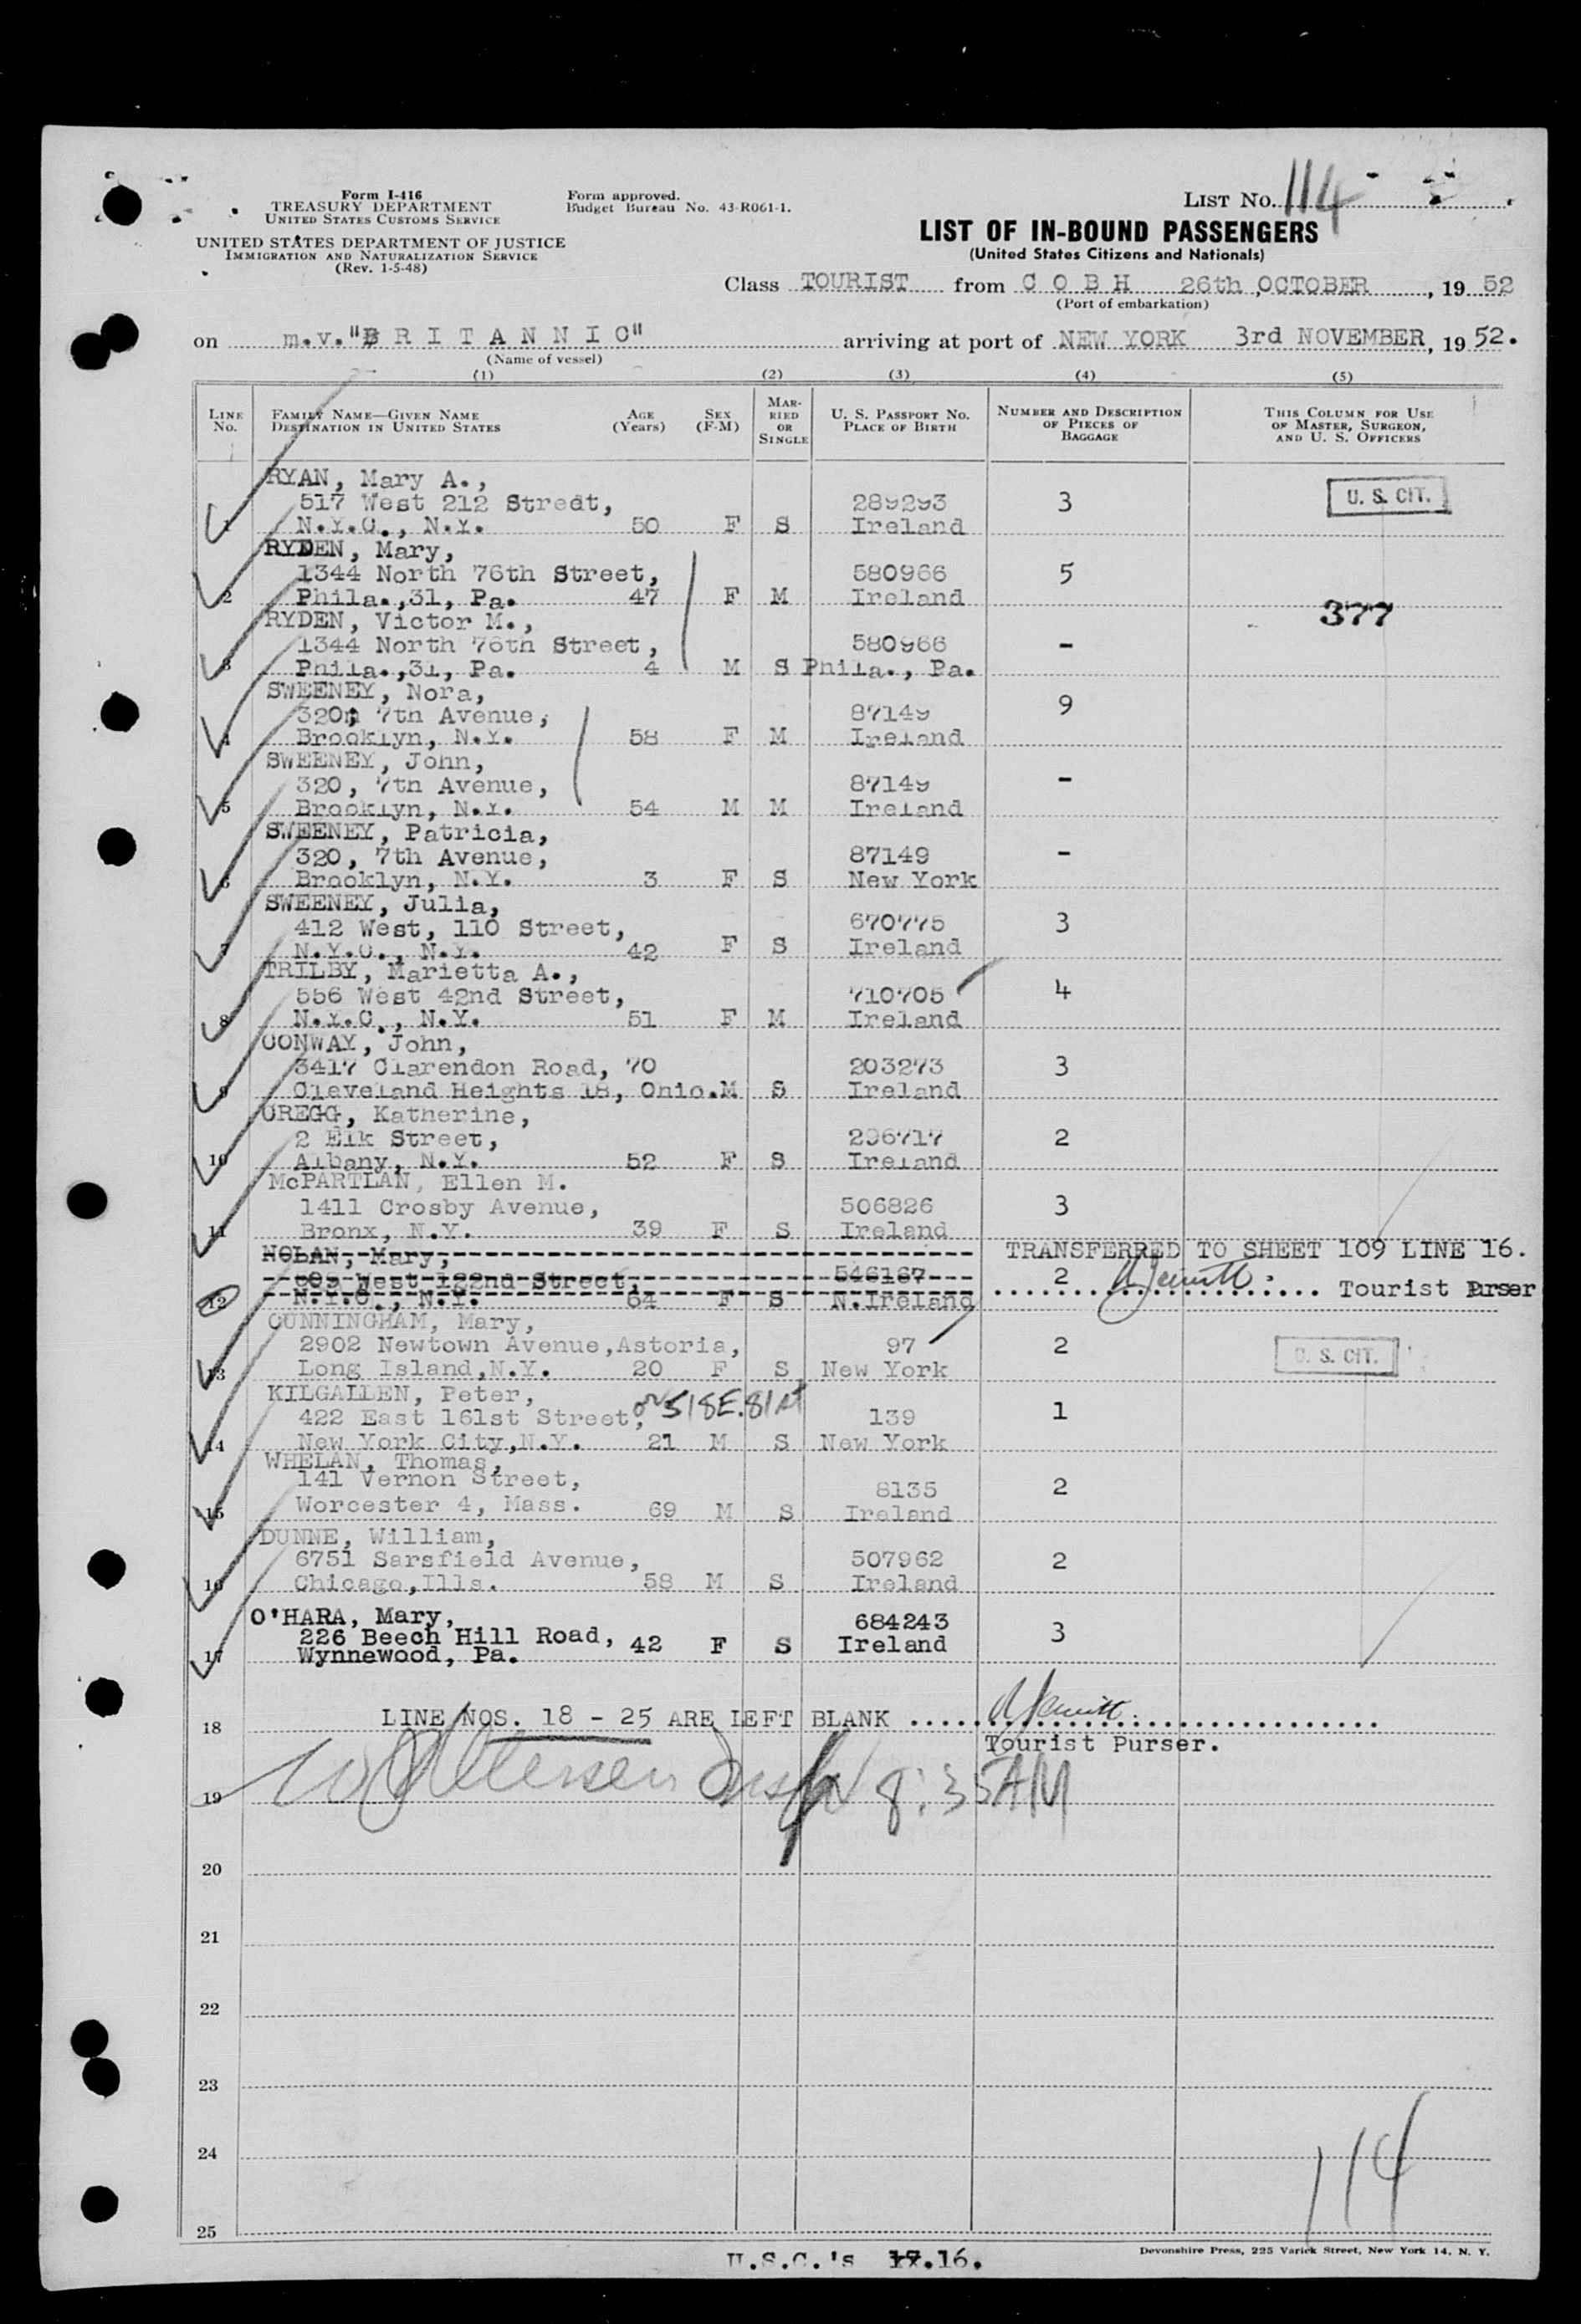 Form I-416
TREASURY DEPARTMENT
UNITED STATES CUSTOMS SERVICE
UNITED STATES DEPARTMENT OF JUSTICE
IMMIGRATION AND NATURALIZATION SERVICE
(Rev. 1-5-48)
Form approved.
Budget Bureau No. 43-R061-1.
LIST NO. 114
LIST OF IN-BOUND PASSENGERS
(United States Citizens and Nationals)
Class TOURIST from C O B H 26th OCTOBER, 19 52
(Port of embarkation)
on m.v."B R I T A N N I C" arriving at port of NEW YORK 3rd NOVEMBER, 19 52.
(Name of vessel)
(1) (2) (3) (4) (5)
LINE No. FAMILY NAME—GIVEN NAME DESTINATION IN UNITED STATES AGE (Years) SEX (F-M) MARRIED OR SINGLE U. S. PASSPORT NO. PLACE OF BIRTH NUMBER AND DESCRIPTION OF PIECES OF BAGGAGE THIS COLUMN FOR USE OF MASTER, SURGEON, AND U. S. OFFICERS
RYAN, Mary A.,
517 West 212 Stredt, 289293 3 U. S. CIT.
1 N.Y.C., N.Y. 50 F S Ireland
RYDEN, Mary,
1344 North 76th Street, 580966 5
2 Phila.,31, Pa. 47 F M Ireland
377
RYDEN, Victor M.,
1344 North 76th Street, 580966 -
3 Phila.,31, Pa. 4 M S Phila., Pa.
SWEENEY, Nora,
320, 7th Avenue, 87149 9
4 Brooklyn, N.Y. 58 F M Ireland
SWEENEY, John,
320, 7th Avenue, 87149 -
5 Brooklyn, N.Y. 54 M M Ireland
SWEENEY, Patricia,
320, 7th Avenue, 87149 -
6 Brooklyn, N.Y. 3 F S New York
SWEENEY, Julia,
412 West, 110 Street, 670775 3
7 N.Y.C., N.Y. 42 F S Ireland
TRILBY, Marietta A.,
556 West 42nd Street, 710705 4
8 N.Y.C., N.Y. 51 F M Ireland
CONWAY, John,
3417 Clarendon Road, 70 203273 3
9 Cleveland Heights 18, Ohio. M S Ireland
GREGG, Katherine,
2 Elk Street, 296717 2
10 Albany, N.Y. 52 F S Ireland
McPARTLAN, Ellen M.
1411 Crosby Avenue, 506826 3
11 Bronx, N.Y. 39 F S Ireland
NOLAN, Mary, TRANSFERRED TO SHEET 109 LINE 16.
West 122nd Street, 546167 2 Tourist Purser
12 N.Y.C., N.Y. 64 F S N.Ireland
CUNNINGHAM, Mary,
2902 Newtown Avenue,Astoria, 97 2 U. S. CIT.
13 Long Island,N.Y. 20 F S New York
KILGALLEN, Peter,
422 East 161st Street, or 518E.81st 139 1
14 New York City,N.Y. 21 M S New York
WHELAN, Thomas,
141 Vernon Street, 8135 2
15 Worcester 4, Mass. 69 M S Ireland
DUNNE, William,
6751 Sarsfield Avenue, 507962 2
16 Chicago,Ills. 58 M S Ireland
O'HARA, Mary, 684243
226 Beech Hill Road, 42 F S Ireland 3
17 Wynnewood, Pa.
18 LINE NOS. 18 - 25 ARE LEFT BLANK
Tourist Purser.
19 8:35AM
20
21
22
23
24
114
25
U.S.C.'s 17.16.
Devonshire Press, 225 Varick Street, New York 14, N. Y.